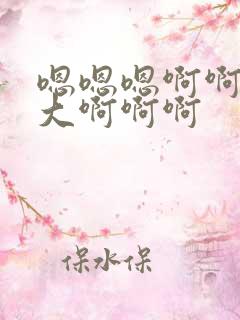 嗯嗯嗯啊啊
大啊啊啊
保水保